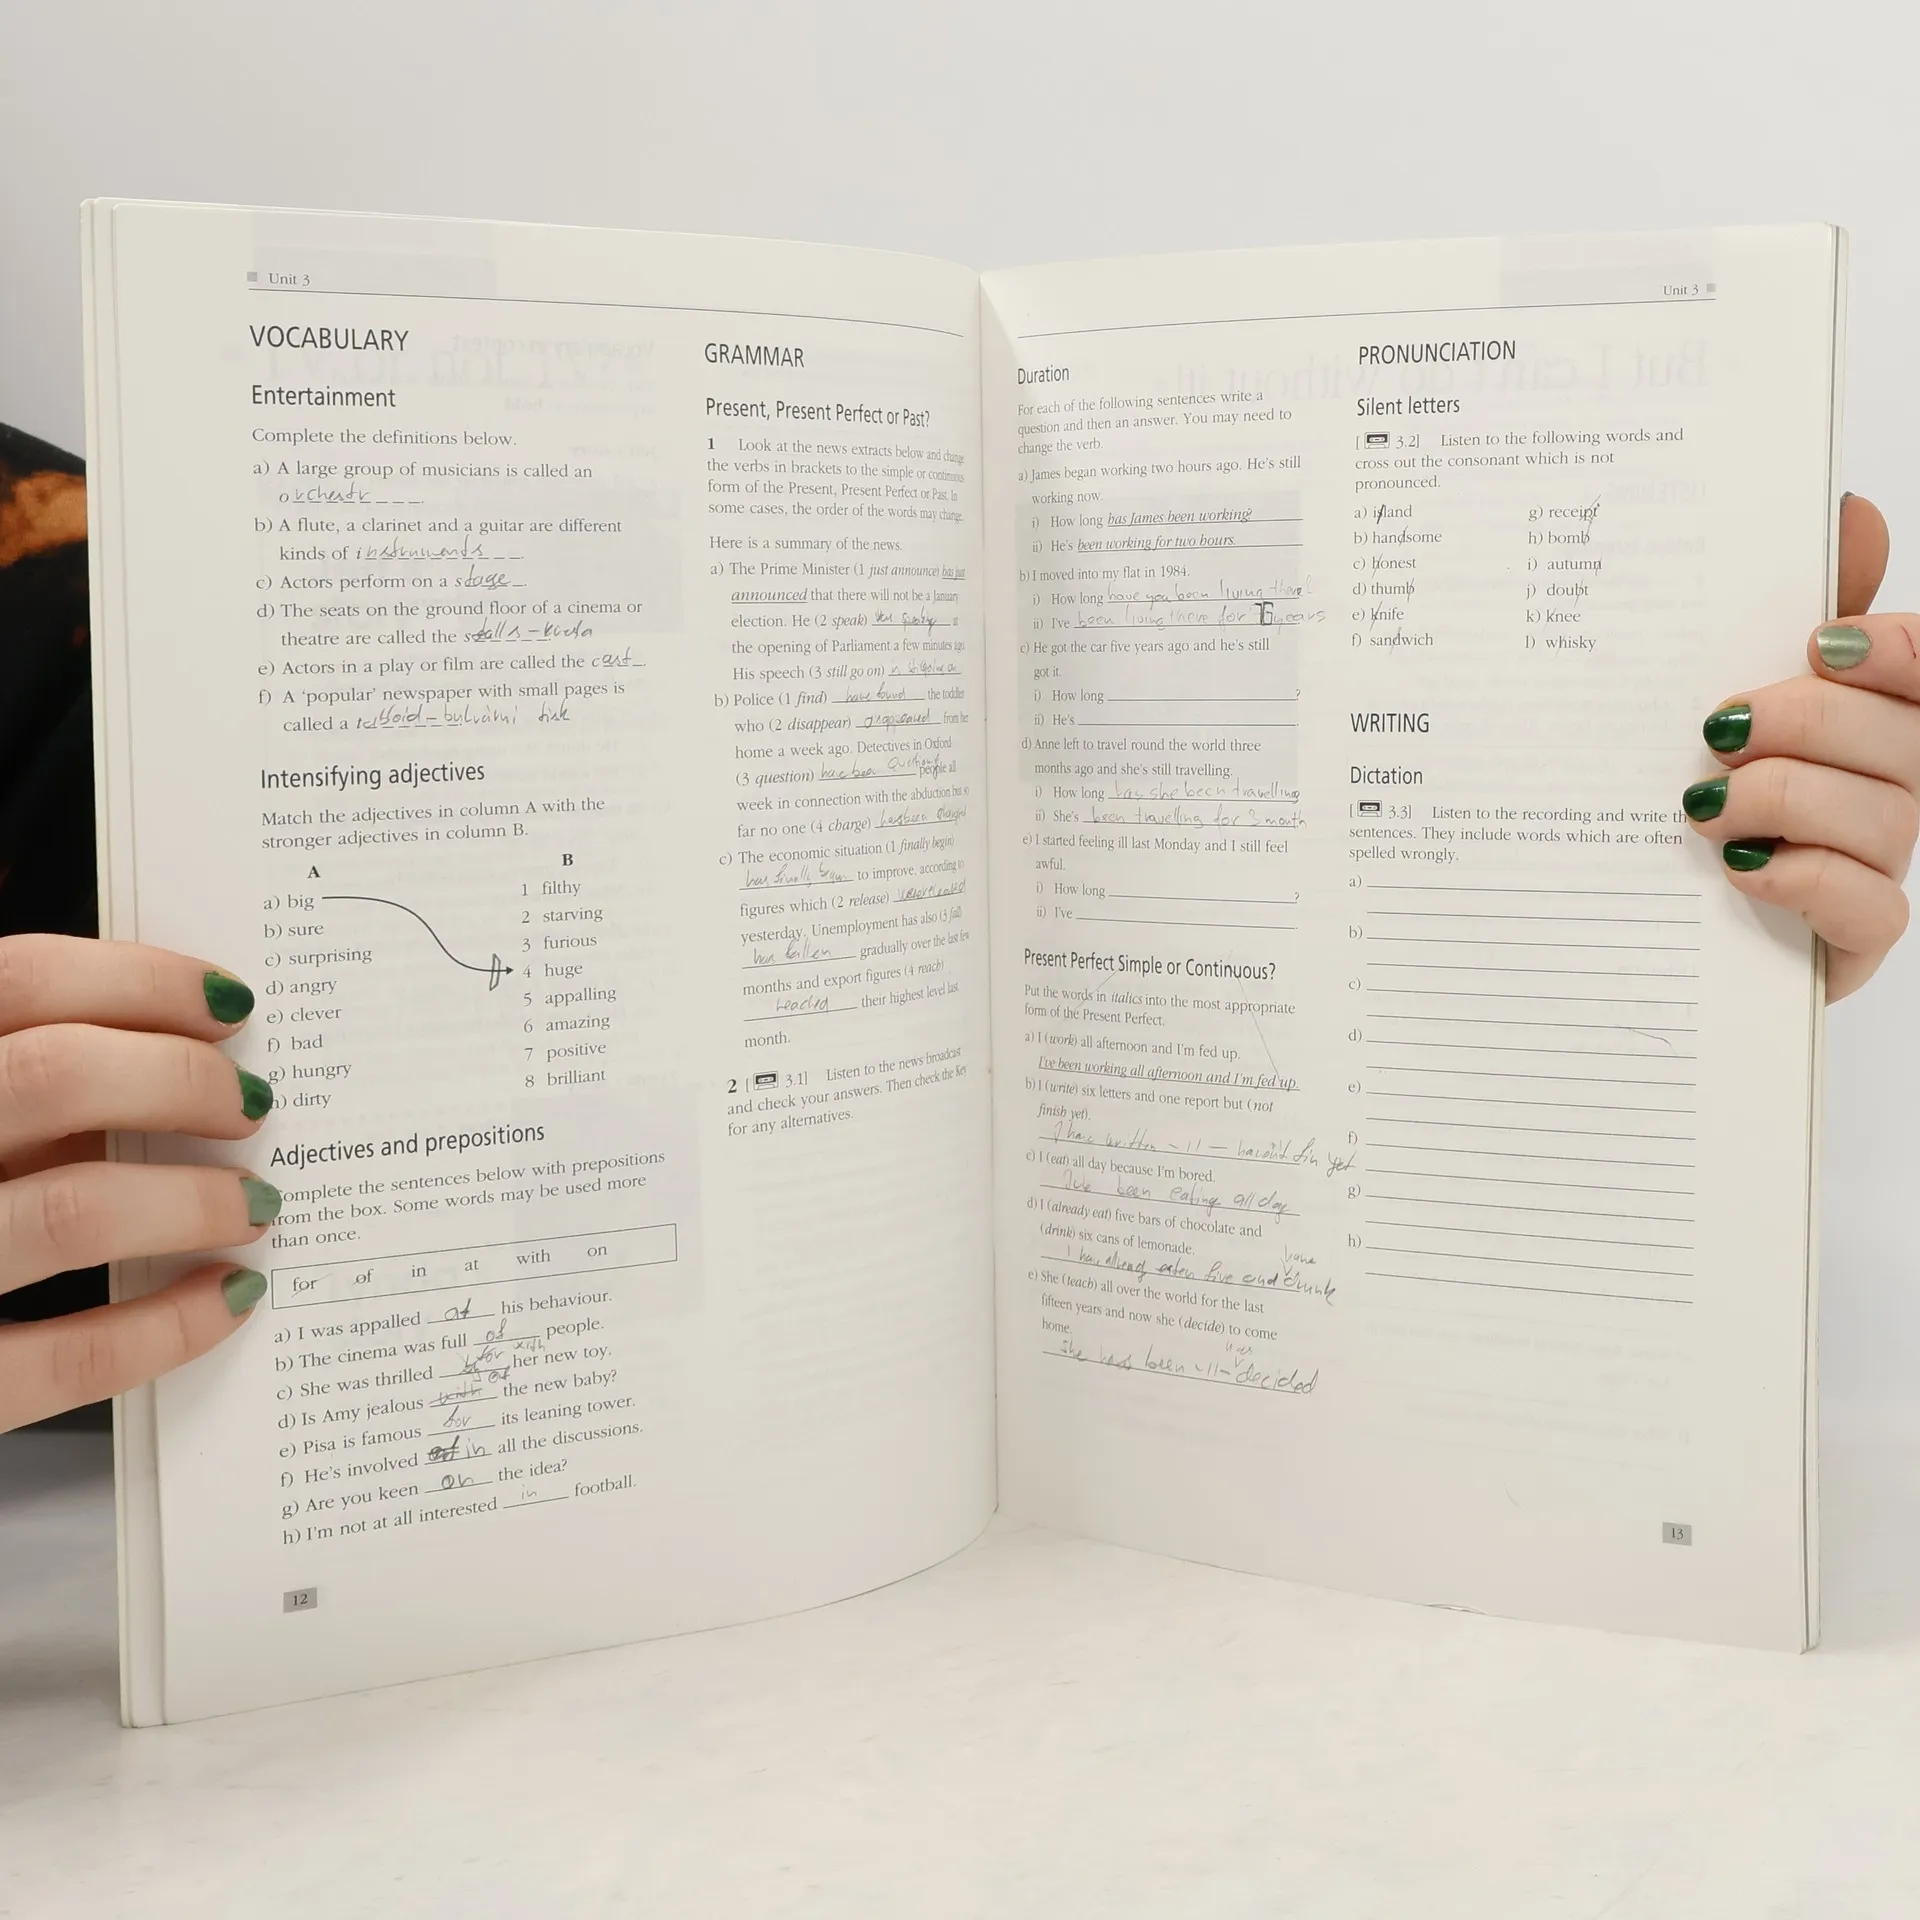 Unit 3
VOCABULARY
Entertainment
Complete the definitions below.
a) A large group of musicians is called an
orchestr _ _ _.
b) A flute, a clarinet and a guitar are different
kinds of instruments _ _.
c) Actors perform on a stage _.
d) The seats on the ground floor of a cinema or
theatre are called the stalls -
e) Actors in a play or film are called the cast _.
f) A ‘popular’ newspaper with small pages is
called a tabloid - bulvární tisk
Intensifying adjectives
Match the adjectives in column A with the
stronger adjectives in column B.
A B
a) big 1 filthy
b) sure 2 starving
c) surprising 3 furious
d) angry 4 huge
e) clever 5 appalling
f) bad 6 amazing
g) hungry 7 positive
h) dirty 8 brilliant
Adjectives and prepositions
Complete the sentences below with prepositions
from the box. Some words may be used more
than once.
for of in at with on
a) I was appalled at his behaviour.
b) The cinema was full of people.
for with
c) She was thrilled her new toy.
of
d) Is Amy jealous with the new baby?
e) Pisa is famous for its leaning tower.
f) He's involved in all the discussions.
g) Are you keen on the idea?
h) I'm not at all interested in football.
12
GRAMMAR
Present, Present Perfect or Past?
1 Look at the news extracts below and change
the verbs in brackets to the simple or continuous
form of the Present, Present Perfect or Past. In
some cases, the order of the words may change.
Here is a summary of the news.
a) The Prime Minister (1 just announce) has just
announced that there will not be a January
election. He (2 speak) at
the opening of Parliament a few minutes ago.
His speech (3 still go on)
b) Police (1 find) have found the toddler
who (2 disappear) disappeared from her
home a week ago. Detectives in Oxford
(3 question) have been people all
week in connection with the abduction but so
far no one (4 charge) has been charged
c) The economic situation (1 finally begin)
has finally begun to improve, according to
figures which (2 release)
yesterday. Unemployment has also (3 fall)
has fallen gradually over the last few
months and export figures (4 reach)
reached their highest level last
month.
2 [3.1] Listen to the news broadcast
and check your answers. Then check the Key
for any alternatives.
Unit 3
Duration
For each of the following sentences write a
question and then an answer. You may need to
change the verb.
a) James began working two hours ago. He's still
working now.
i) How long has James been working?
ii) He's been working for two hours.
b) I moved into my flat in 1984.
i) How long have you been living there?
ii) I've been living there for years
c) He got the car five years ago and he's still
got it.
i) How long ?
ii) He's .
d) Anne left to travel round the world three
months ago and she's still travelling.
i) How long has she been travelling
ii) She's been travelling for 3 month
e) I started feeling ill last Monday and I still feel
awful.
i) How long ?
ii) I've .
Present Perfect Simple or Continuous?
Put the words in italics into the most appropriate
form of the Present Perfect.
a) I (work) all afternoon and I'm fed up.
I've been working all afternoon and I'm fed up.
b) I (write) six letters and one report but (not
finish yet).
I have written - 11 - haven't fin yet
c) I (eat) all day because I'm bored.
I've been eating all day
d) I (already eat) five bars of chocolate and
(drink) six cans of lemonade.
have
I have already eaten five and drunk
e) She (teach) all over the world for the last
fifteen years and now she (decide) to come
home.
has
She has been - 11 - decided
PRONUNCIATION
Silent letters
[3.2] Listen to the following words and
cross out the consonant which is not
pronounced.
a) island g) receipt
b) handsome h) bomb
c) honest i) autumn
d) thumb j) doubt
e) knife k) knee
f) sandwich l) whisky
WRITING
Dictation
[3.3] Listen to the recording and write th
sentences. They include words which are often
spelled wrongly.
a)
b)
c)
d)
e)
f)
g)
h)
13